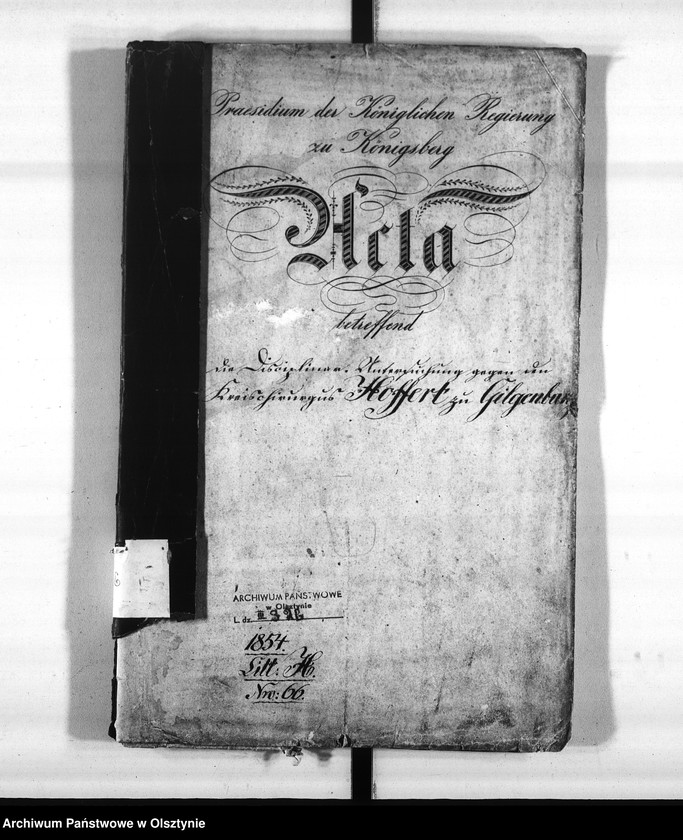 Praesidium der Königlichen Regierung
zu Königsberg
Acta
betreffend
die Disciplinar-Untersuchung gegen den
Kreischirurgus Hoffert zu Gilgenburg
ARCHIWUM PAŃSTWOWE
w Olsztynie
L. dz.
1854.
Litt: H.
Nro: 66.
Archiwum Państwowe w Olsztynie